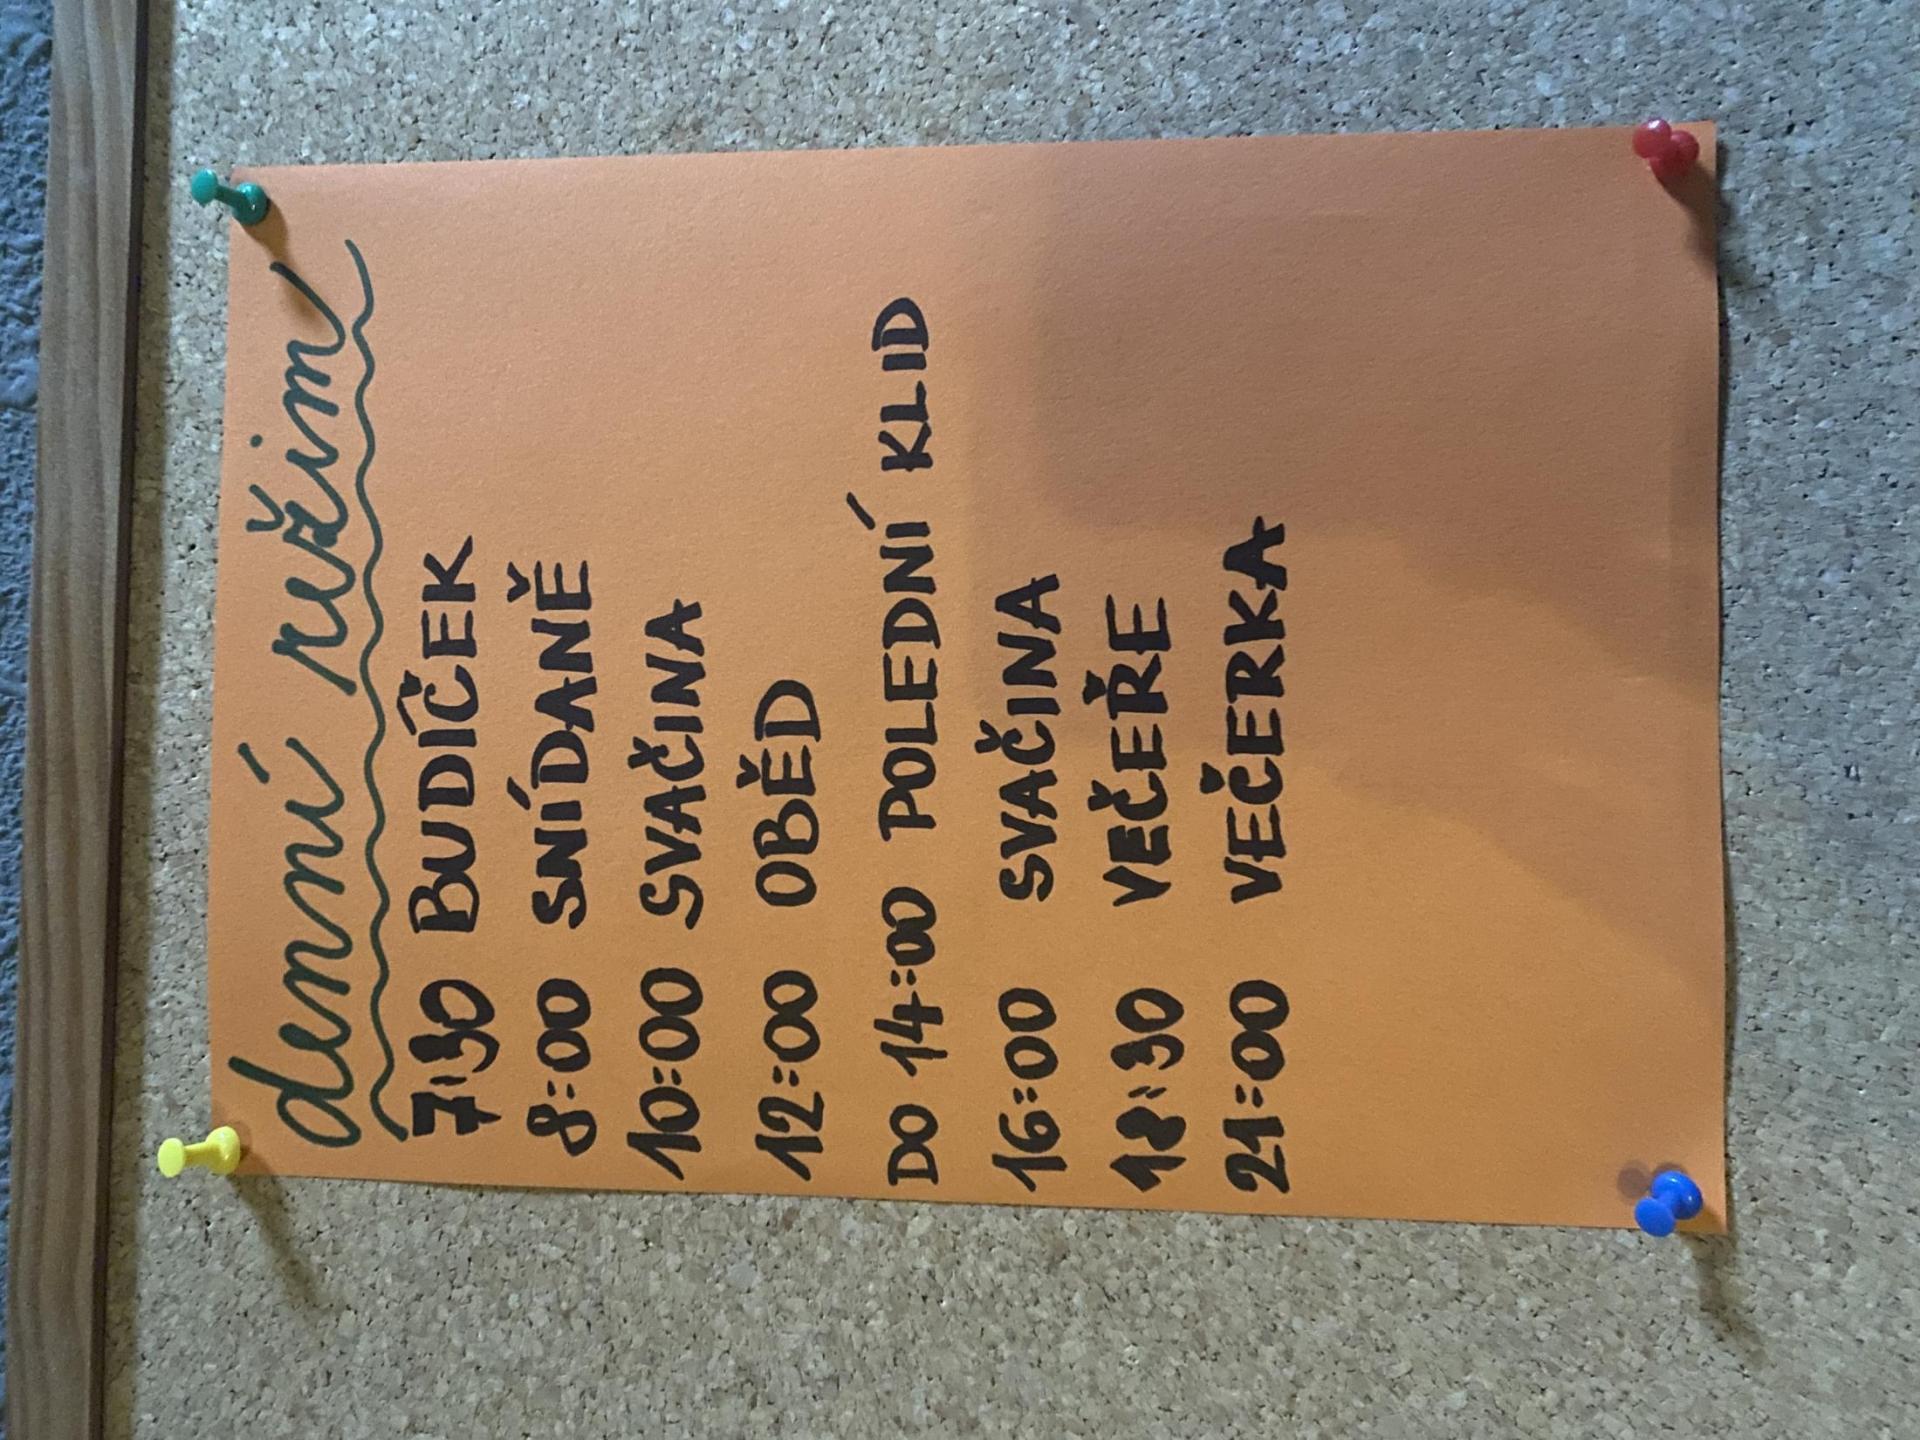 denní režim
7:30 BUDÍČEK
8:00 SNÍDANĚ
10:00 SVAČINA
12:00 OBĚD
DO 14:00 POLEDNÍ KLID
16:00 SVAČINA
18:30 VEČEŘE
21:00 VEČERKA